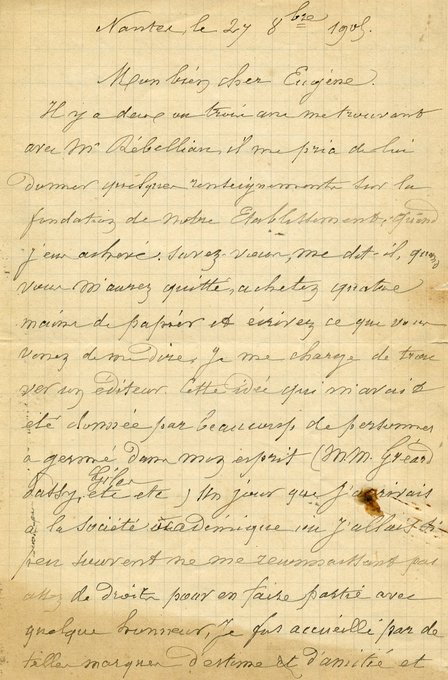 Nantes, le 27 8bre 1905.
Mon bien cher Eugène.
Il y a deux ou trois ans me trouvant
avec Mr Rébellian, il me pria de lui
donner quelques renseignements sur la
fondation de notre Etablissement. Quand
j'eus achevé. Savez-vous, me dit-il, quand
vous m'aurez quitté, achetez quatre
mains de papier et écrivez ce que vous
venez de me dire, je me charge de trou
ver un éditeur. Cette idée qui m'avait
été donnée par beaucoup de personnes
a germé dans mon esprit (M.M. Gréard
etc etc) Un jour que j'arrivais
à la Société académique où j'allais
peu souvent ne me reconnaissant pas
assez de droits pour en faire partie avec
quelque honneur, je fus accueilli par de
telles marques d'estime et d'amitié et